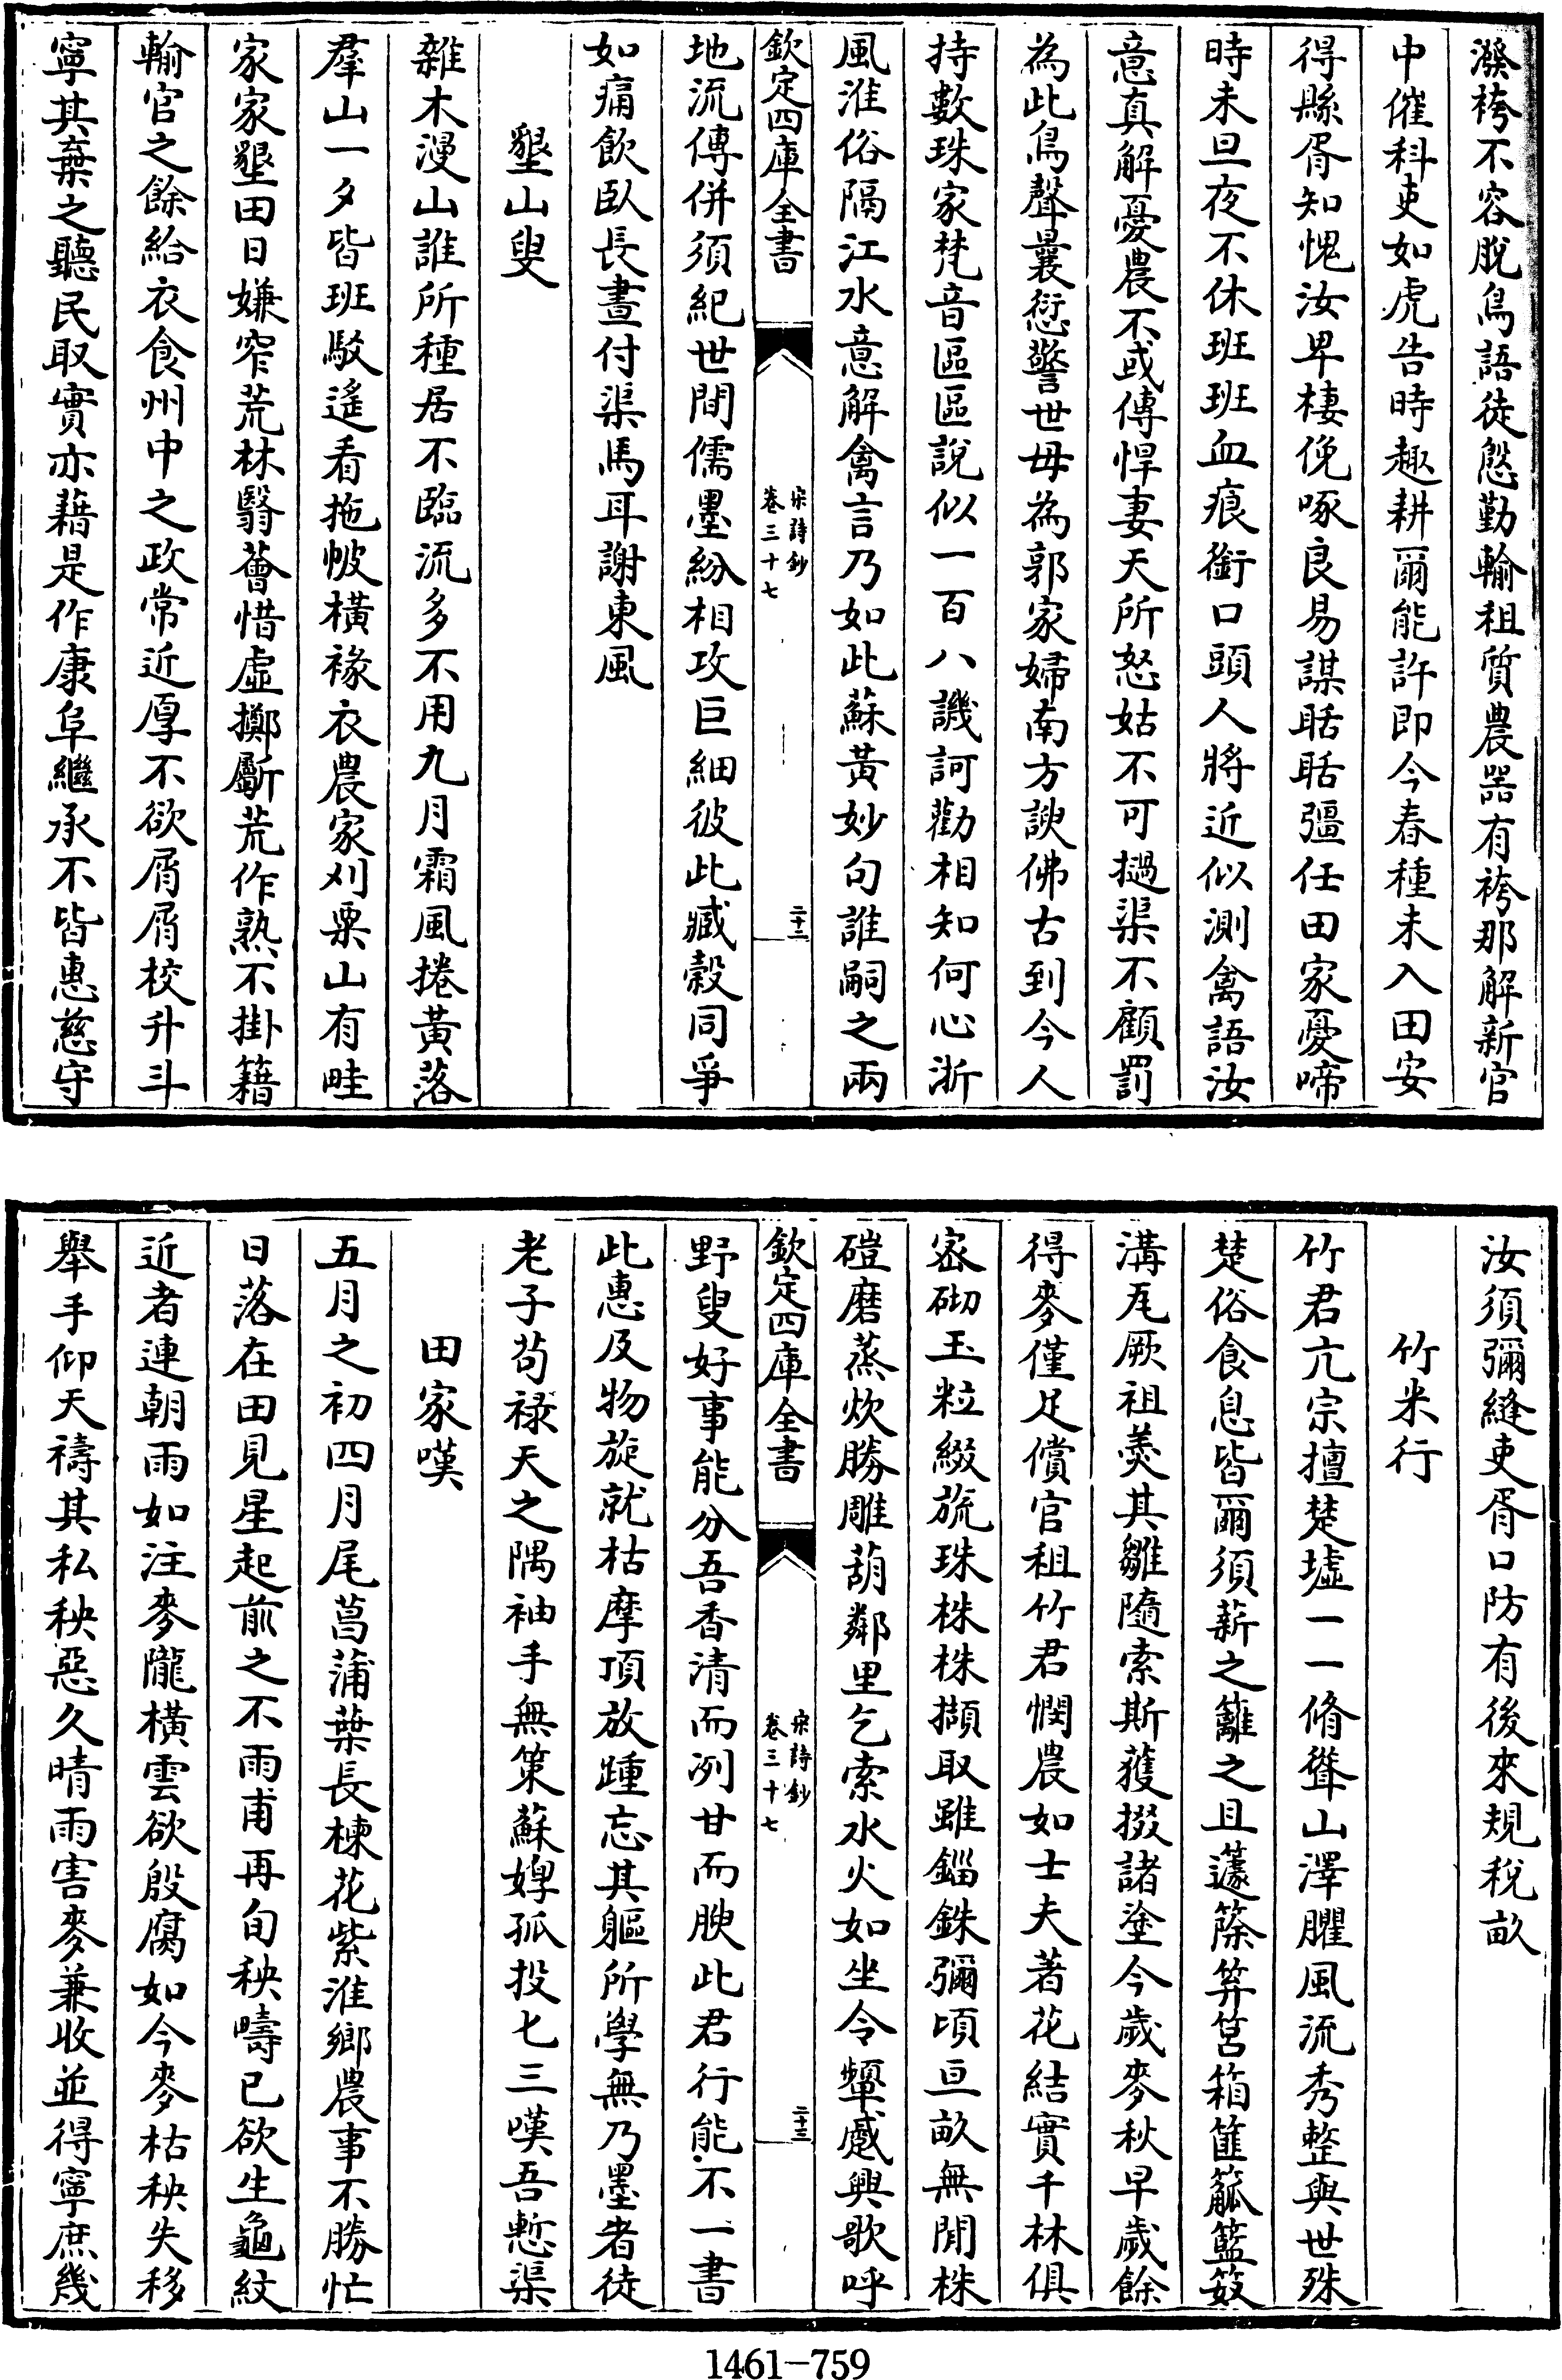 潑袴不容脫鳥語徒慇勤輸租質農器有袴那解新官
中催科吏如虎告時趣耕爾能許即今春種未入田安
得縣胥知愧汝卑棲俛啄良易謀聒聒彊任田家憂啼
時未旦夜不休班班血痕銜口頭人將近似測禽語汝
意真解憂農不或傳悍妻天所怒姑不可撾渠不顧罰
為此鳥聲曩愆警世毋為郭家婦南方諛佛古到今人
持數珠家梵音區區說似一百八譏訶勸相知何心浙
風淮俗隔江水意解禽言乃如此蘇黃妙句誰嗣之兩
欽定四庫全書
宋詩鈔
卷三十七
二十二
地流傳併須紀世間儒墨紛相攻巨細彼此臧穀同爭
如痛飲臥長晝付渠馬耳謝東風
墾山叟
雜木漫山誰所種居不臨流多不用九月霜風捲黃落
羣山一夕皆班駁遙看拖帔橫褖衣農家刈粟山有畦
家家墾田日嫌窄荒林翳薈惜虛擲斸荒作熟不掛籍
輸官之餘給衣食州中之政常近厚不欲屑屑校升斗
寧其棄之聽民取實亦藉是作康阜繼承不皆惠慈守
汝須彌縫吏胥口防有後來規稅畝
竹米行
竹君亢宗擅楚墟一一脩聳山澤臞風流秀整與世殊
楚俗食息皆爾須薪之籬之且蘧篨筭筥箱篚觚籃笯
溝瓦厥祖羮其雛隨索斯獲掇諸塗今歲麥秋早歲餘
得麥僅足償官租竹君憫農如士夫著花結實千林俱
宻砌玉粒綴旒珠株株擷取雖錙銖彌頃亘畝無閒株
磑磨蒸炊勝雕葫鄰里乞索水火如坐令顰蹙興歌呼
欽定四庫全書
宋詩鈔
卷三十七
二十三
野叟好事能分吾香清而冽甘而腴此君行能不一書
此惠及物旋就枯摩頂放踵忘其軀所學無乃墨者徒
老子苟祿天之隅袖手無策蘇婢孤投七三嘆吾慙渠
田家嘆
五月之初四月尾菖蒲葉長楝花紫淮鄉農事不勝忙
日落在田見星起前之不雨甫再旬秧疇已欲生龜紋
近者連朝雨如注麥隴橫雲欲殷腐如今麥枯秧失移
舉手仰天禱其私秧惡久晴雨害麥兼收並得寧庶幾
1461-759